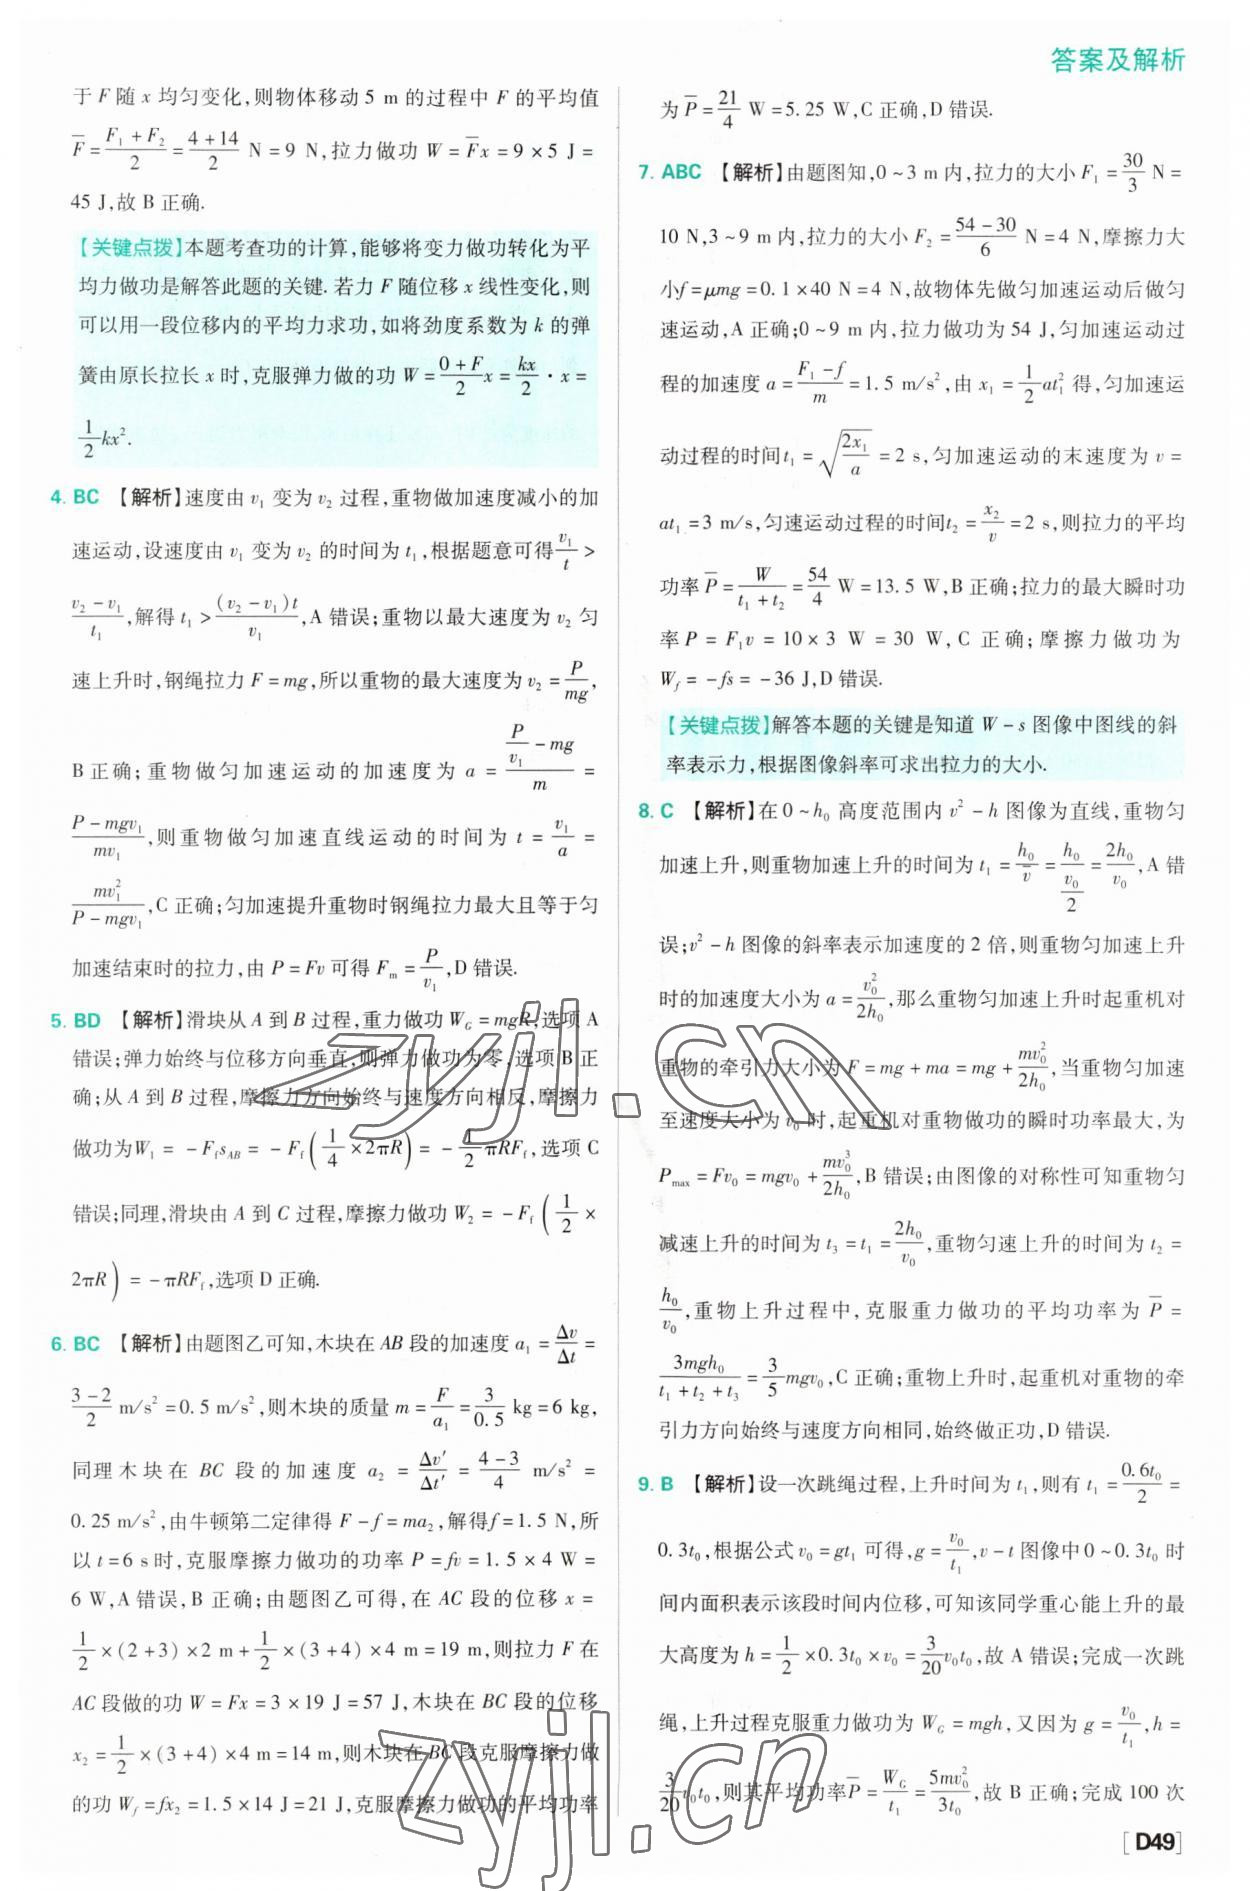 答案及解析
于 F 随 x 均匀变化,则物体移动 5 m 的过程中 F 的平均值
F̄ = (F₁ + F₂)/2 = (4 + 14)/2 N = 9 N,拉力做功 W = F̄x = 9 × 5 J =
45 J,故 B 正确.
【关键点拨】本题考查功的计算,能够将变力做功转化为平
均力做功是解答此题的关键. 若力 F 随位移 x 线性变化,则
可以用一段位移内的平均力求功,如将劲度系数为 k 的弹
簧由原长拉长 x 时,克服弹力做的功 W = (0 + F)/2 x = kx/2 · x =
1/2 kx².
4. BC 【解析】速度由 v₁ 变为 v₂ 过程,重物做加速度减小的加
速运动,设速度由 v₁ 变为 v₂ 的时间为 t₁,根据题意可得 v₁/t >
(v₂ − v₁)/t₁,解得 t₁ > (v₂ − v₁)t/v₁,A 错误;重物以最大速度为 v₂ 匀
速上升时,钢绳拉力 F = mg,所以重物的最大速度为 v₂ = P/mg,
B 正确;重物做匀加速运动的加速度为 a = (P/v₁ − mg)/m =
(P − mgv₁)/mv₁,则重物做匀加速直线运动的时间为 t = v₁/a =
mv₁²/(P − mgv₁),C 正确;匀加速提升重物时钢绳拉力最大且等于匀
加速结束时的拉力,由 P = Fv 可得 Fₘ = P/v₁,D 错误.
5. BD 【解析】滑块从 A 到 B 过程,重力做功 W_G = mgR,选项 A
错误;弹力始终与位移方向垂直,则弹力做功为零,选项 B 正
确;从 A 到 B 过程,摩擦力方向始终与速度方向相反,摩擦力
做功为 W₁ = −F_f s_AB = −F_f(1/4 × 2πR) = −1/2 πRF_f,选项 C
错误;同理,滑块由 A 到 C 过程,摩擦力做功 W₂ = −F_f(1/2 ×
2πR) = −πRF_f,选项 D 正确.
6. BC 【解析】由题图乙可知,木块在 AB 段的加速度 a₁ = Δv/Δt =
(3 − 2)/2 m/s² = 0.5 m/s²,则木块的质量 m = F/a₁ = 3/0.5 kg = 6 kg,
同理木块在 BC 段的加速度 a₂ = Δv′/Δt′ = (4 − 3)/4 m/s² =
0.25 m/s²,由牛顿第二定律得 F − f = ma₂,解得 f = 1.5 N,所
以 t = 6 s 时,克服摩擦力做功的功率 P = fv = 1.5 × 4 W =
6 W,A 错误,B 正确;由题图乙可得,在 AC 段的位移 x =
1/2 × (2 + 3) × 2 m + 1/2 × (3 + 4) × 4 m = 19 m,则拉力 F 在
AC 段做的功 W = Fx = 3 × 19 J = 57 J,木块在 BC 段的位移
x₂ = 1/2 × (3 + 4) × 4 m = 14 m,则木块在 BC 段克服摩擦力做
的功 W_f = fx₂ = 1.5 × 14 J = 21 J,克服摩擦力做功的平均功率
为 P̄ = 21/4 W = 5.25 W,C 正确,D 错误.
7. ABC 【解析】由题图知,0 ~ 3 m 内,拉力的大小 F₁ = 30/3 N =
10 N,3 ~ 9 m 内,拉力的大小 F₂ = (54 − 30)/6 N = 4 N,摩擦力大
小 f = μmg = 0.1 × 40 N = 4 N,故物体先做匀加速运动后做匀
速运动,A 正确;0 ~ 9 m 内,拉力做功为 54 J,匀加速运动过
程的加速度 a = (F₁ − f)/m = 1.5 m/s²,由 x₁ = 1/2 at₁² 得,匀加速运
动过程的时间 t₁ = √(2x₁/a) = 2 s,匀加速运动的末速度为 v =
at₁ = 3 m/s,匀速运动过程的时间 t₂ = x₂/v = 2 s,则拉力的平均
功率 P̄ = W/(t₁ + t₂) = 54/4 W = 13.5 W,B 正确;拉力的最大瞬时功
率 P = F₁v = 10 × 3 W = 30 W,C 正确;摩擦力做功为
W_f = −fs = −36 J,D 错误.
【关键点拨】解答本题的关键是知道 W − s 图像中图线的斜
率表示力,根据图像斜率可求出拉力的大小.
8. C 【解析】在 0 ~ h₀ 高度范围内 v² − h 图像为直线,重物匀
加速上升,则重物加速上升的时间为 t₁ = h₀/v̄ = h₀/(v₀/2) = 2h₀/v₀,A 错
误;v² − h 图像的斜率表示加速度的 2 倍,则重物匀加速上升
时的加速度大小为 a = v₀²/2h₀,那么重物匀加速上升时起重机对
重物的牵引力大小为 F = mg + ma = mg + mv₀²/2h₀,当重物匀加速
至速度大小为 v₀ 时,起重机对重物做功的瞬时功率最大,为
P_max = Fv₀ = mgv₀ + mv₀³/2h₀,B 错误;由图像的对称性可知重物匀
减速上升的时间为 t₃ = t₁ = 2h₀/v₀,重物匀速上升的时间为 t₂ =
h₀/v₀,重物上升过程中,克服重力做功的平均功率为 P̄ =
3mgh₀/(t₁ + t₂ + t₃) = 3/5 mgv₀,C 正确;重物上升时,起重机对重物的牵
引力方向始终与速度方向相同,始终做正功,D 错误.
9. B 【解析】设一次跳绳过程,上升时间为 t₁,则有 t₁ = 0.6t₀/2 =
0.3t₀,根据公式 v₀ = gt₁ 可得,g = v₀/t₁,v − t 图像中 0 ~ 0.3t₀ 时
间内面积表示该段时间内位移,可知该同学重心能上升的最
大高度为 h = 1/2 × 0.3t₀ × v₀ = 3/20 v₀t₀,故 A 错误;完成一次跳
绳,上升过程克服重力做功为 W_G = mgh,又因为 g = v₀/t₁,h =
3/20 v₀t₀,则其平均功率 P̄ = W_G/t₁ = 5mv₀²/3t₀,故 B 正确;完成 100 次
[D49]
zyjl.cn
zyjl.cn